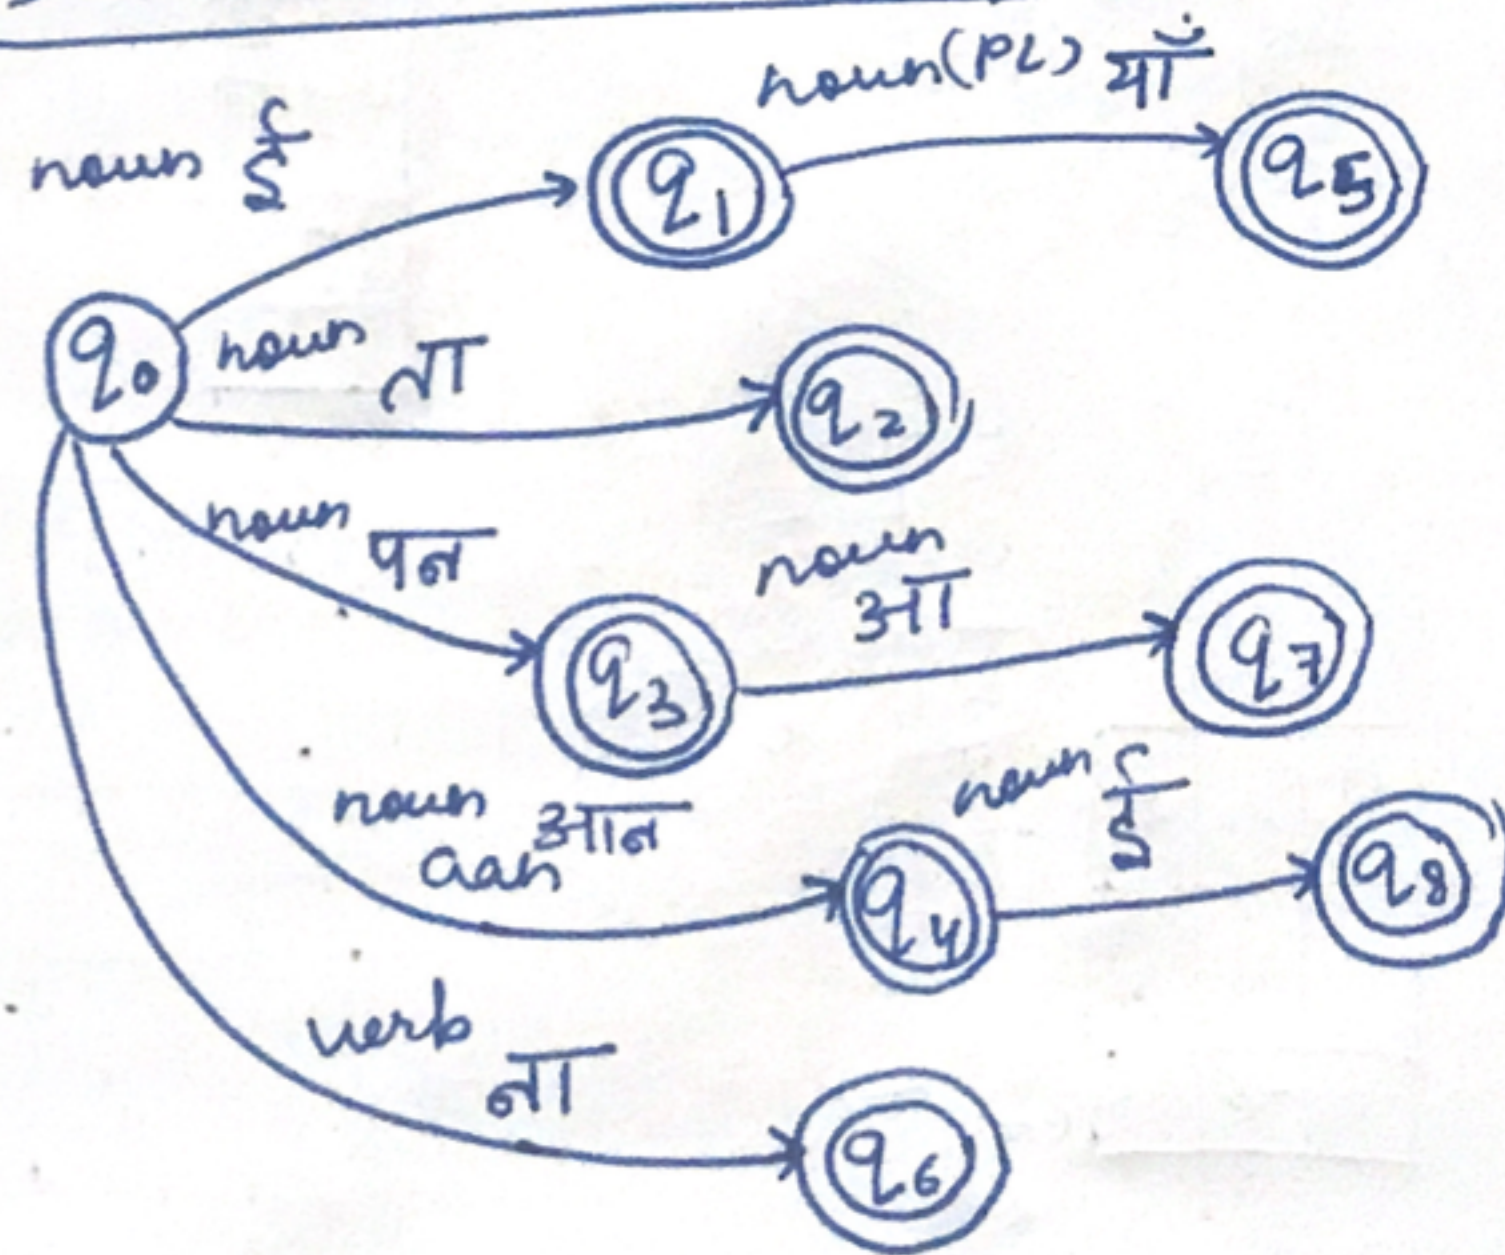 noun(PL) याँ
noun ई
q1
q5
q0
noun ता
q2
noun पन
q3
noun आ
q7
noun आन
aan
q4
noun ई
q8
verb ना
q6